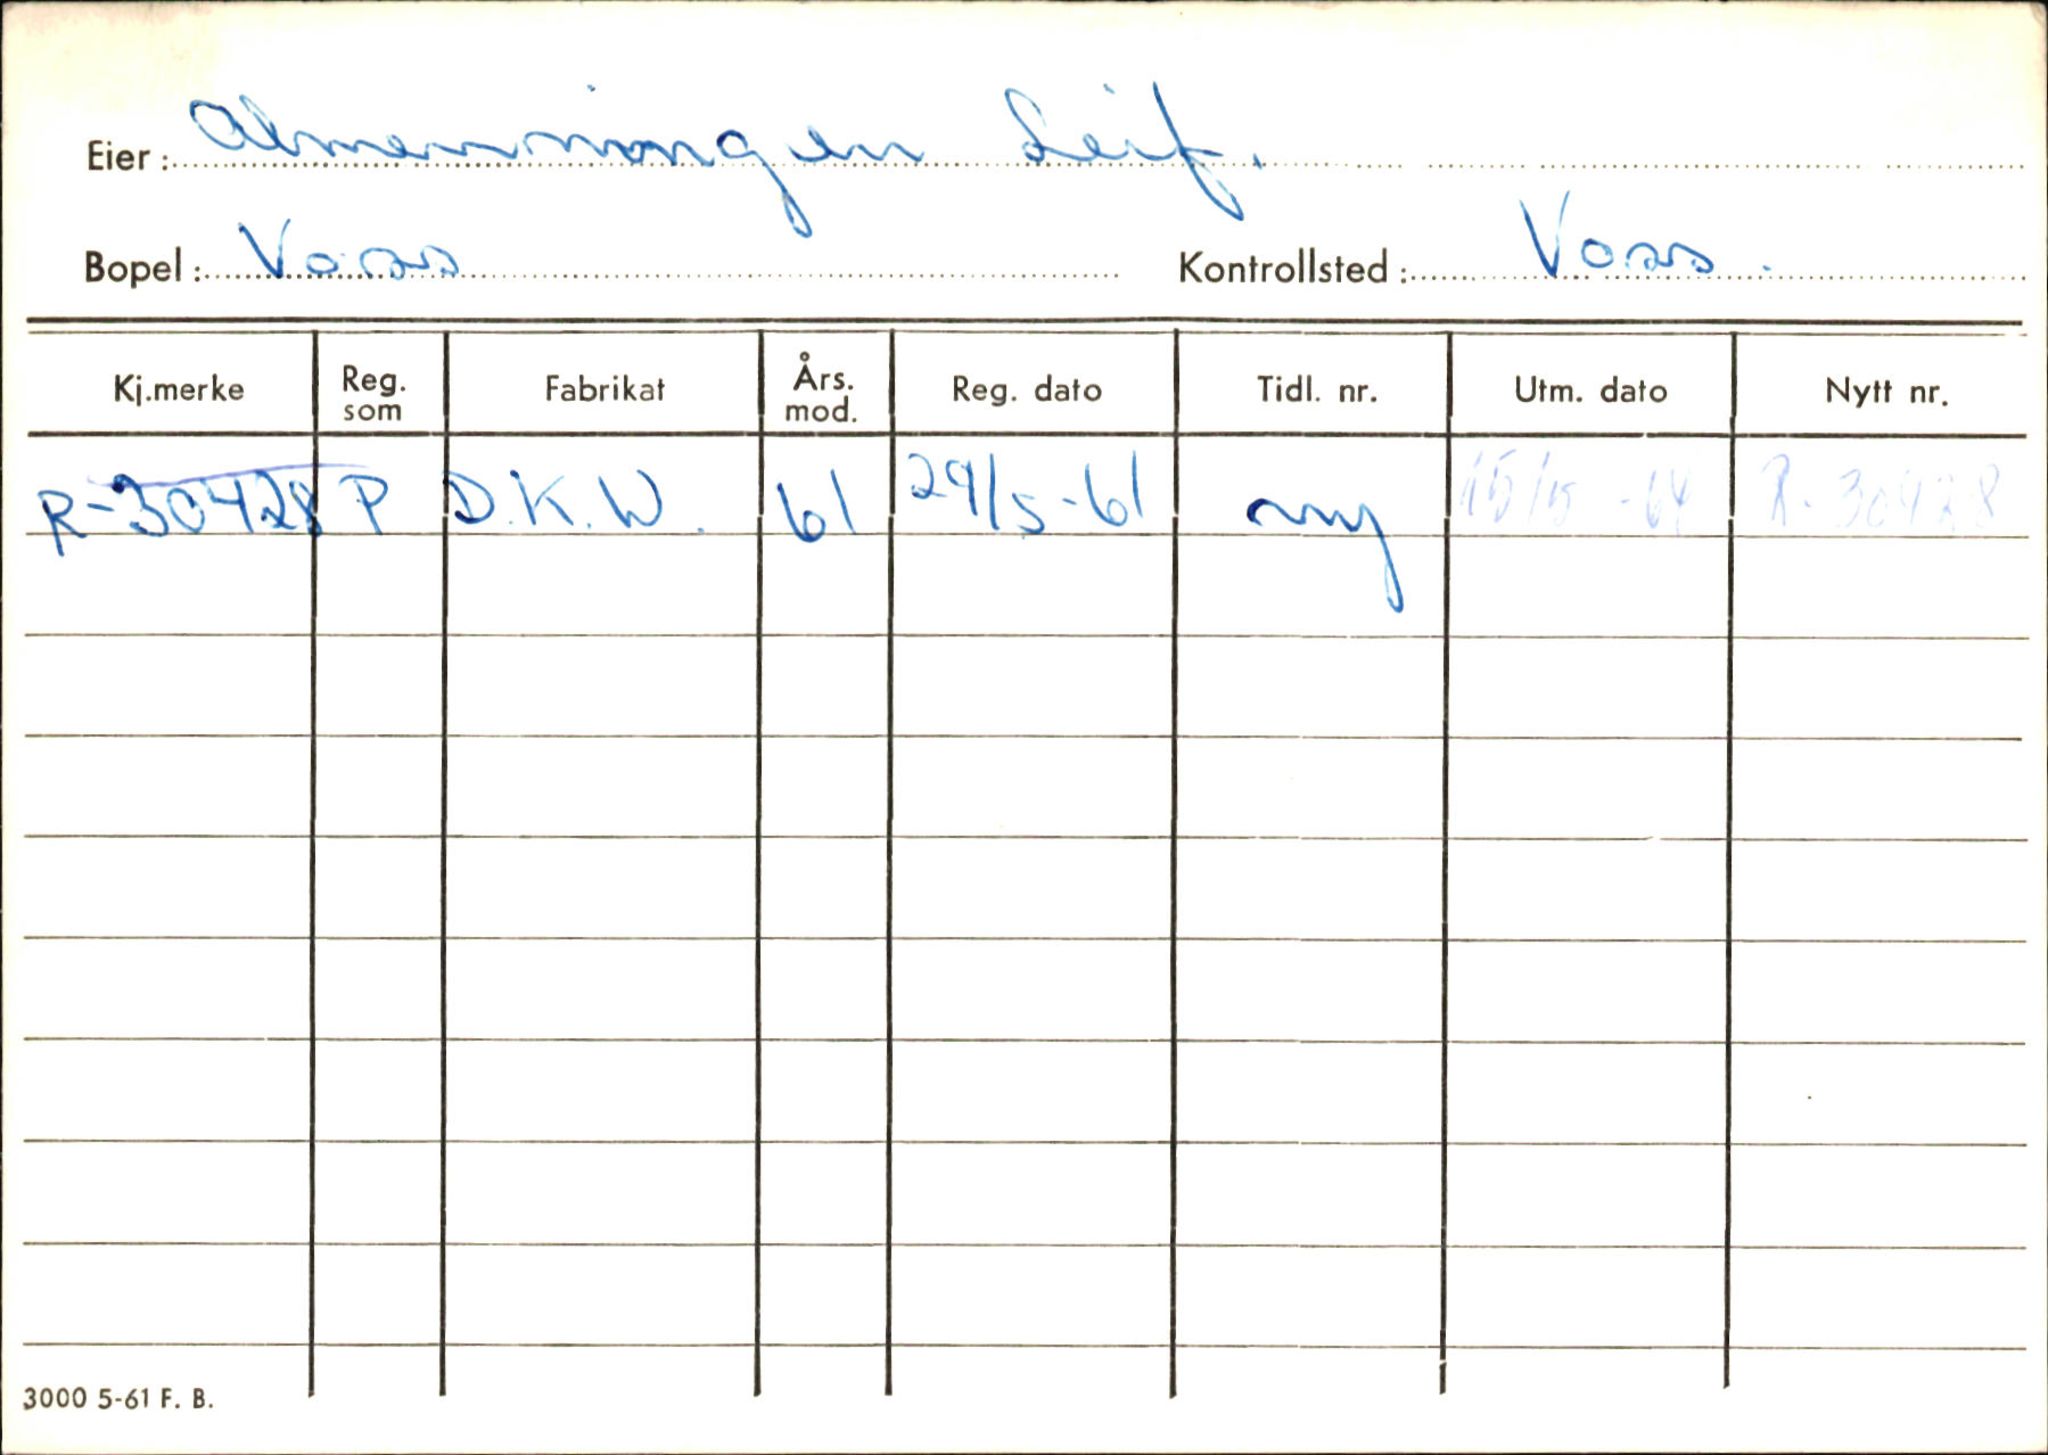 Eier: Almenningen Leif.
Bopel: Voss Kontrollsted: Voss.
Kj.merke Reg. som Fabrikat Års. mod. Reg. dato Tidl. nr. Utm. dato Nytt nr.
R-30428 P D.K.W. 61 29/5-61 ny 15/5-64 R-30428
3000 5-61 F. B.